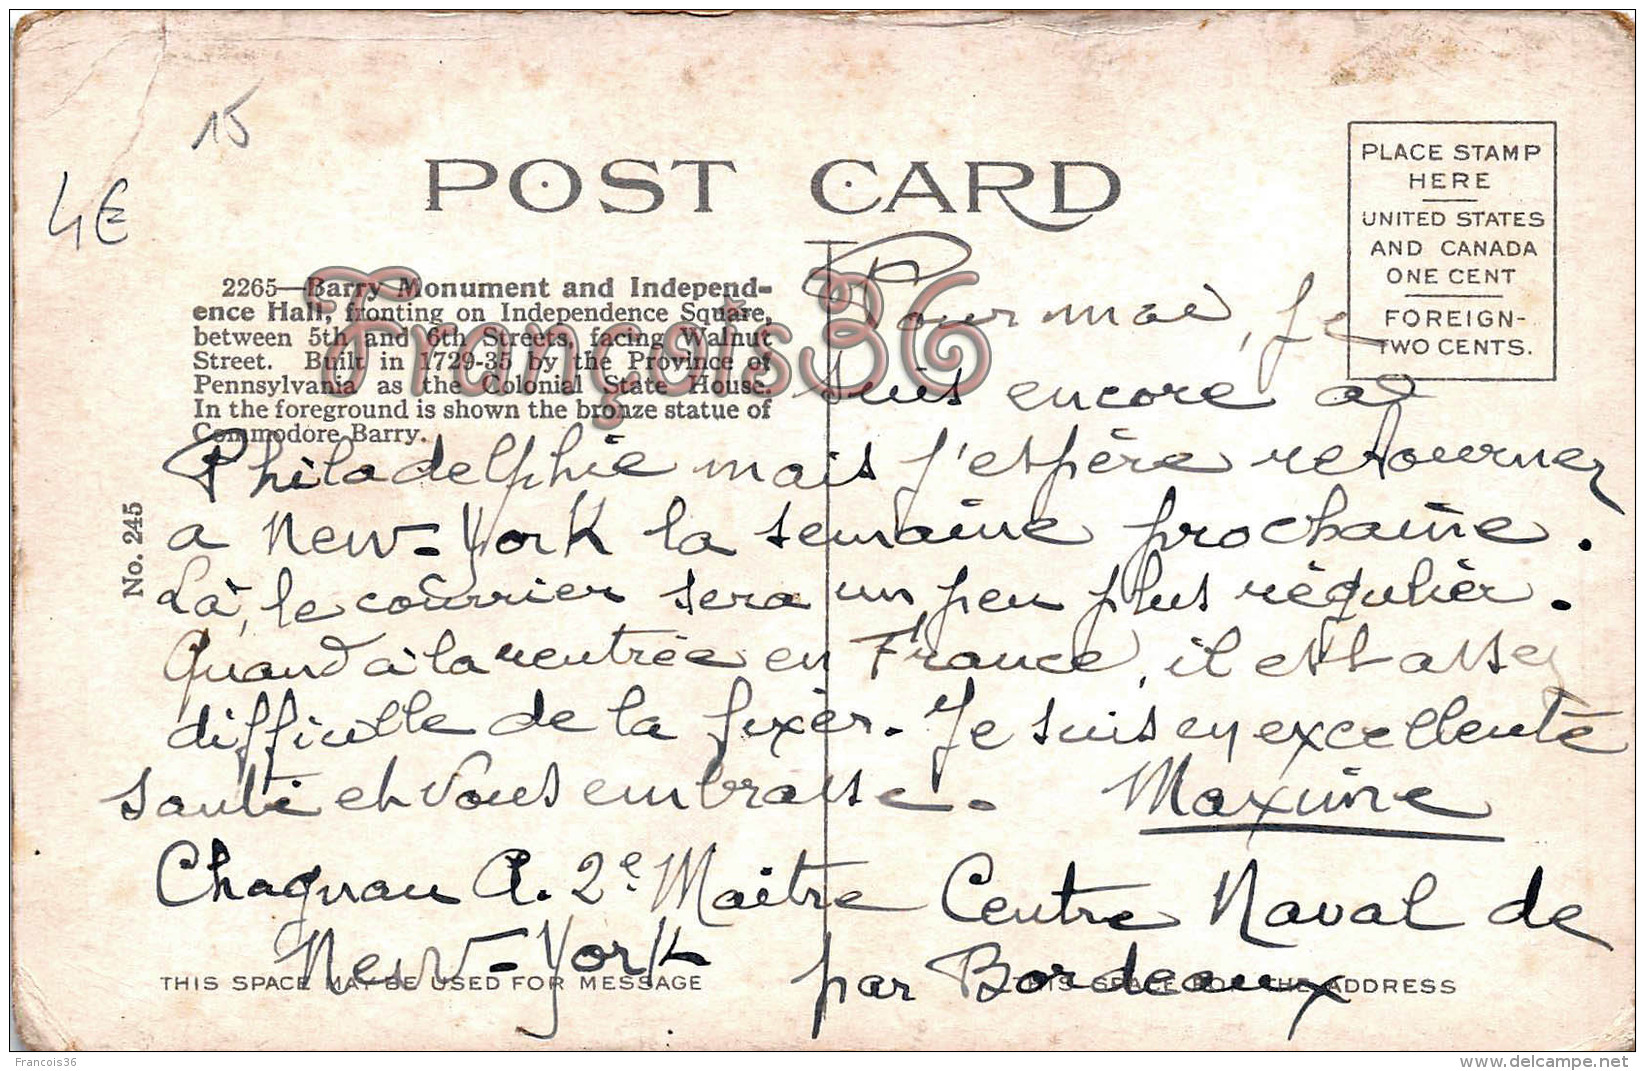 15
4€
POST CARD
PLACE STAMP
HERE
UNITED STATES
AND CANADA
ONE CENT
FOREIGN-
TWO CENTS.
2265—Barry Monument and Independ-
ence Hall, fronting on Independence Square,
between 5th and 6th Streets, facing Walnut
Street. Built in 1729-35 by the Province of
Pennsylvania as the Colonial State House.
In the foreground is shown the bronze statue of
Commodore Barry.
François36
No. 245
Pour moi, je
suis encore à
Philadelphie mais j'espère retourner
a New-York la semaine prochaine.
Là, le courrier sera un peu plus régulier.
Quand à la rentrée en France, il est assez
difficille de la fixer. Je suis en excellente
santé et vous embrasse. Maxime
Chagnau A. 2e Maître Centre Naval de
New-York par Bordeaux
THIS SPACE MAY BE USED FOR MESSAGE
THIS SPACE FOR THE ADDRESS
Francois36
www.delcampe.net